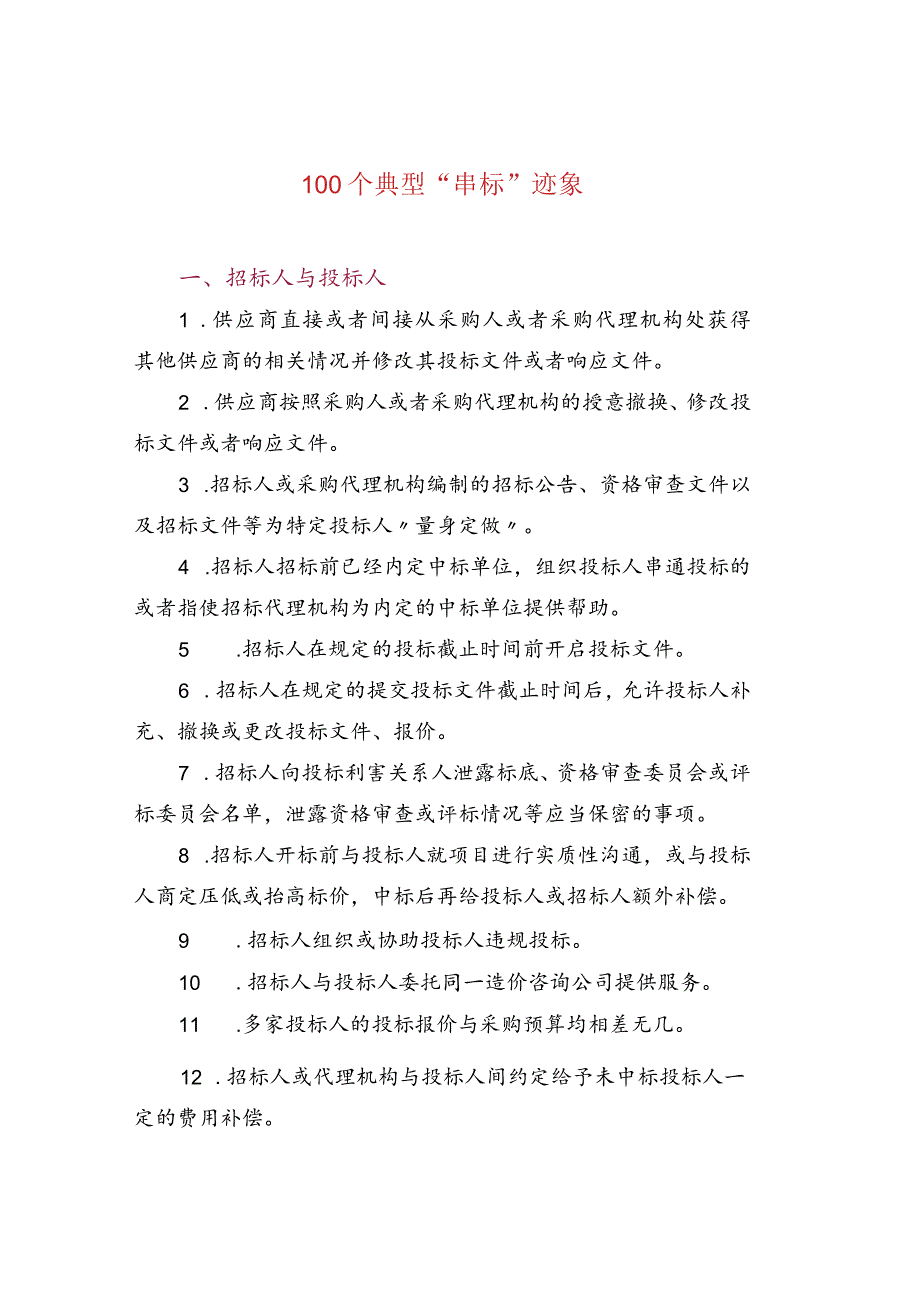 100个典型“串标”迹象
一、招标人与投标人
1 .供应商直接或者间接从采购人或者采购代理机构处获得
其他供应商的相关情况并修改其投标文件或者响应文件。
2 .供应商按照采购人或者采购代理机构的授意撤换、修改投
标文件或者响应文件。
3 .招标人或采购代理机构编制的招标公告、资格审查文件以
及招标文件等为特定投标人〃量身定做〃。
4 .招标人招标前已经内定中标单位，组织投标人串通投标的
或者指使招标代理机构为内定的中标单位提供帮助。
5 .招标人在规定的投标截止时间前开启投标文件。
6 .招标人在规定的提交投标文件截止时间后，允许投标人补
充、撤换或更改投标文件、报价。
7 .招标人向投标利害关系人泄露标底、资格审查委员会或评
标委员会名单，泄露资格审查或评标情况等应当保密的事项。
8 .招标人开标前与投标人就项目进行实质性沟通，或与投标
人商定压低或抬高标价，中标后再给投标人或招标人额外补偿。
9 .招标人组织或协助投标人违规投标。
10 .招标人与投标人委托同一造价咨询公司提供服务。
11 .多家投标人的投标报价与采购预算均相差无几。
12 .招标人或代理机构与投标人间约定给予未中标投标人一
定的费用补偿。